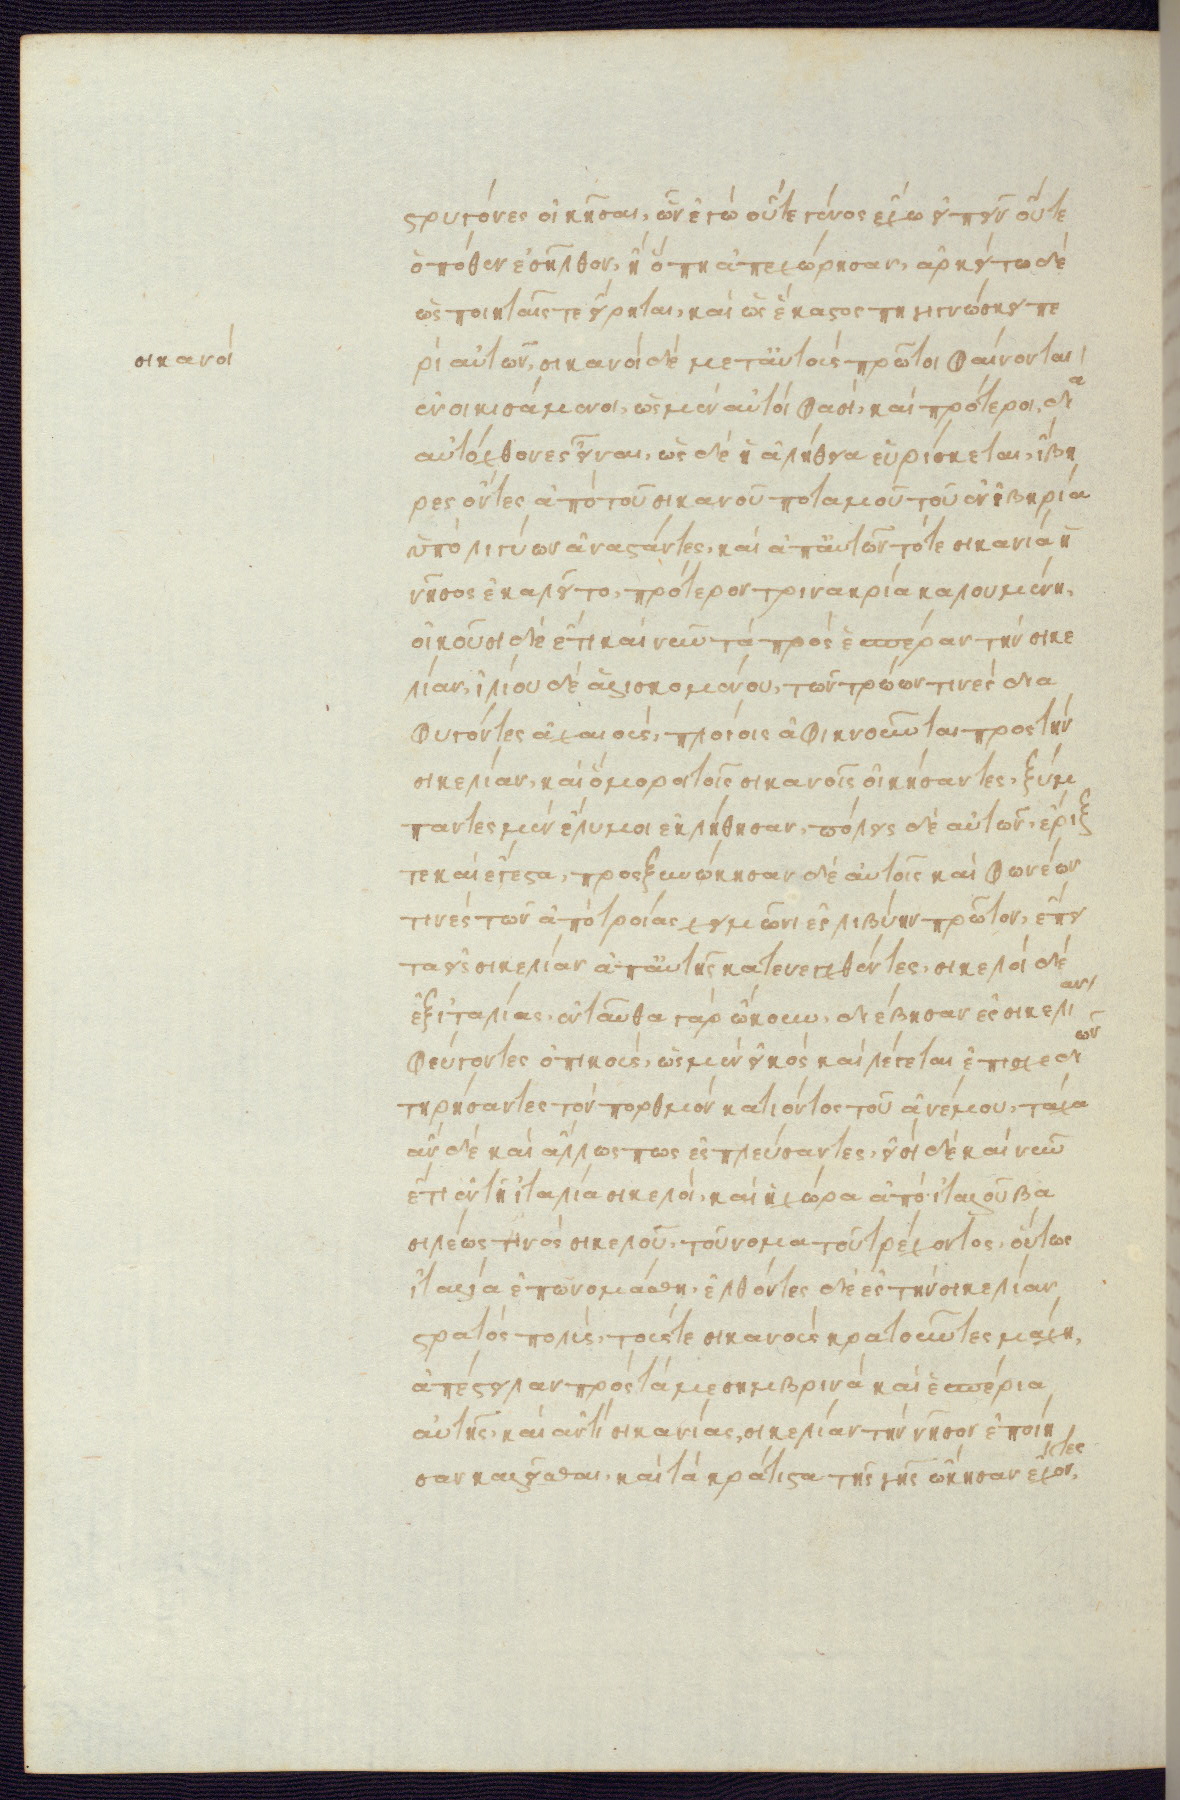 στρυγόνες οἰκῆσαι, ὧν ἐγὼ οὔτε γένος ἔχω εἰπεῖν οὔτε
ὁπόθεν ἐσῆλθον, ἢ ὅπη ἀπεχώρησαν, ἀρκείτω δὲ
ὡς ποιηταῖς τε εἴρηται, καὶ ὡς ἕκαστος πη γιγνώσκει πε
σικανοὶ
ρὶ αὐτῶν, σικανοὶ δὲ μετ' αὐτοὺς πρῶτοι φαίνονται
ἐνοικισάμενοι, ὡς μὲν αὐτοὶ φασὶ, καὶ πρότεροι, δια
αὐτόχθονες εἶναι, ὡς δὲ ἡ ἀλήθεια εὑρίσκεται, ἴβη
ρες ὄντες ἀπὸ τοῦ σικανοῦ ποταμοῦ τοῦ ἐν ἰβηρία
ὑπὸ λιγύων ἀναστάντες, καὶ ἀπ' αὐτῶν τότε σικανία ἡ
νῆσος ἐκαλεῖτο, πρότερον τρινακρία καλουμένη,
οἰκοῦσι δὲ ἔτι καὶ νῦν τὰ πρὸς ἑσπέραν τὴν σικε
λίαν, ἰλίου δὲ ἁλισκομένου, τῶν τρώων τινὲς δια
φυγόντες ἀχαιοὺς, πλοίοις ἀφικνοῦνται προς τὴν
σικελίαν, καὶ ὅμοροι τοῖς σικανοῖς οἰκήσαντες, ξύμ
παντες μὲν ἔλυμοι ἐκλήθησαν, πόλεις δὲ αὐτῶν, ἔριξ
τε καὶ ἔγεστα, προσξυνώκησαν δὲ αὐτοῖς καὶ φωκέων
τινὲς τῶν ἀπὸ τροίας χειμῶνι ἐς λιβύην πρῶτον, ἔπει
τα εἰς σικελίαν ἀπ' αὐτῆς κατενεχθέντες, σικελοὶ δὲ
ἐξ ἰταλίας, ἐνταῦθα γὰρ ὤκουν, διέβησαν ἐς σικελίαν
φεύγοντες ὀπικοὺς, ὡς μὲν εἰκὸς καὶ λέγεται ἐπὶ σχεδιῶν
τηρήσαντες τὸν πορθμὸν κατιόντος τοῦ ἀνέμου, τάχα
ἂν δὲ καὶ ἄλλως πως ἐς πλεύσαντες, εἰσὶ δὲ καὶ νῦν
ἔτι ἐν τῇ ἰταλία σικελοὶ, καὶ ἡ χώρα ἀπὸ ἰταλοῦ βα
σιλέως τινὸς σικελοῦ, τοὔνομα τοῦτ' ἔχοντος, οὕτως
ἰταλία ἐπωνομάσθη, ἐλθόντες δὲ ἐς τὴν σικελίαν
στρατὸς πολὺς, τούς τε σικανοὺς κρατοῦντες μάχη,
ἀπέστειλαν πρὸς τὰ μεσημβρινὰ καὶ ἑσπέρια
αὐτῆς, καὶ ἀντὶ σικανίας, σικελίαν τὴν νῆσον ἐποίη
σαν καλεῖσθαι, καὶ τὰ κράτιστα τῆς γῆς ᾤκησαν ἔχοντες,